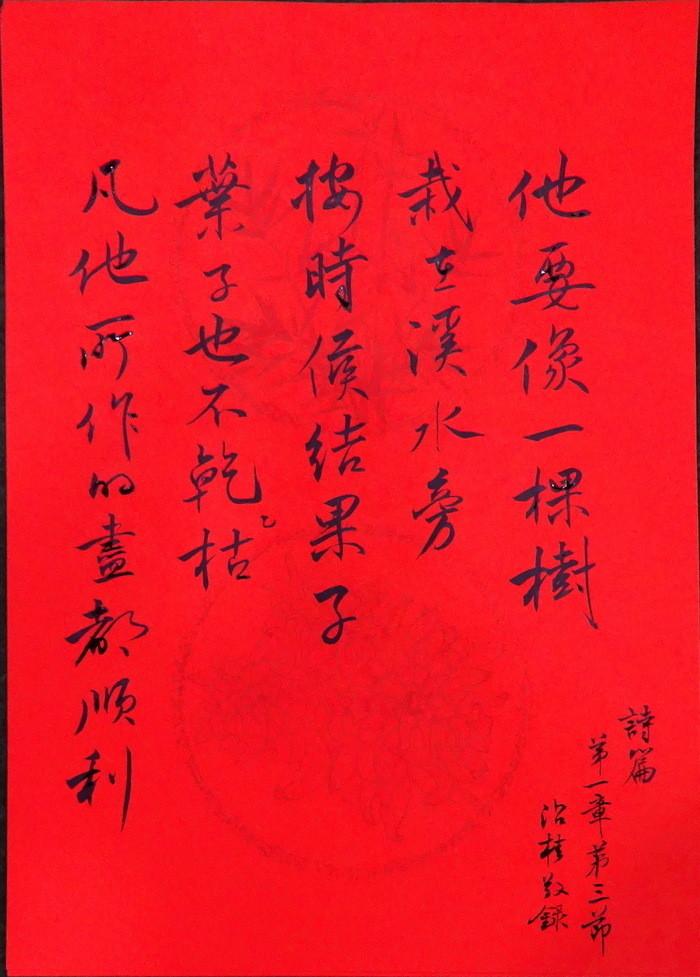 他要像一棵樹
栽在溪水旁
按時候結果子
葉子也不乾枯
凡他所作的盡都順利
詩篇
第一章第三節
治桂敬錄